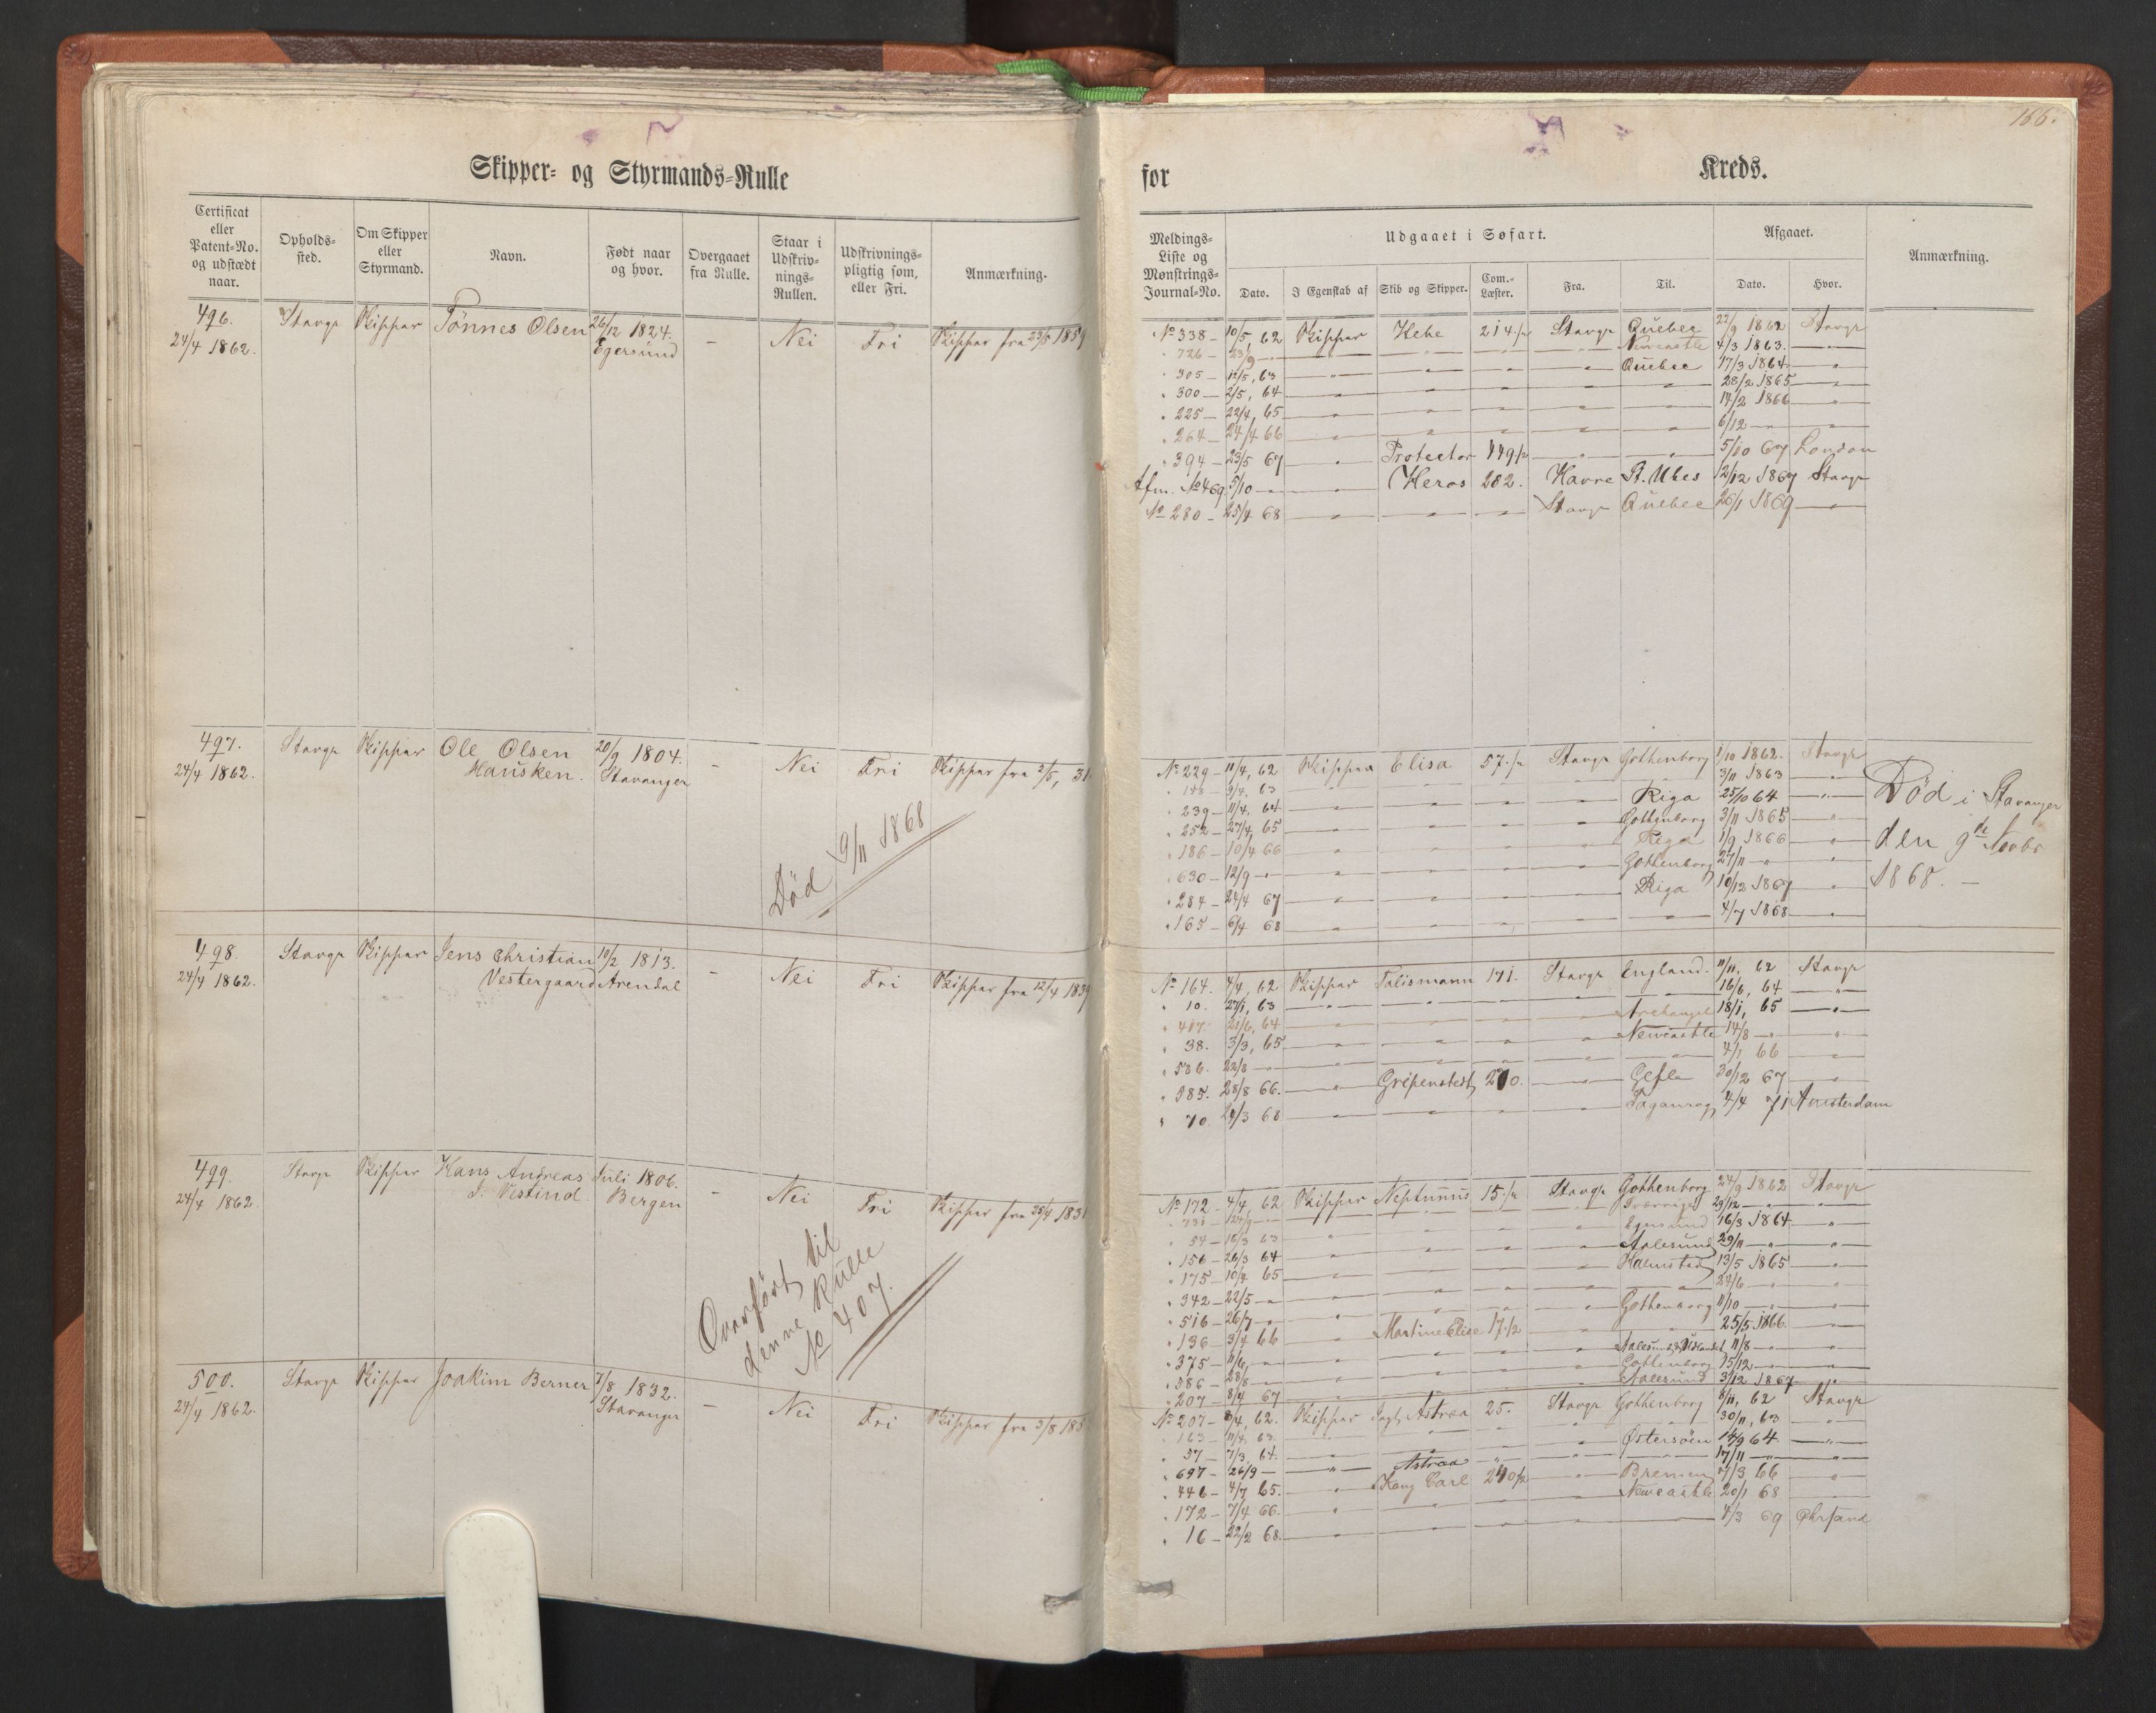 Skipper- og Styrmands-Rulle
Certificat eller Patent-No. og udstædt naar.
Opholds-sted.
Om Skipper eller Styrmand.
Navn.
Født naar og hvor.
Overgaaet fra Rulle.
Staar i Udskriv-nings-Rullen.
Udskrivnings-pligtig som, eller Fri.
Anmærkning.
496. Stavgr Skipper Tönnes Olsen 26/12 1824. — Nei Fri Skipper fra 23/5 1859
24/4 1862. Egersund
497. Stavgr Skipper Ole Olsen 20/9 1804. — Nei Fri Skipper fra 3/5, 31
24/4 1862. Hausken. Stavanger
Död 9/11 1868
498. Stavgr Skipper Jens Christian 10/2 1813. — Nei Fri Skipper fra 12/4 1839
24/4 1862. Vestergaard Arendal
499. Stavgr Skipper Hans Andreas Juli 1806. — Nei Fri Skipper fra 25/4 1831
24/4 1862. J. Vestind Bergen
Overfört til
denne Rulle
No 407.
500. Stavgr Skipper Joakim Berner 7/8 1832. — Nei Fri Skipper fra 3/8 185
24/4 1862. Stavanger
166.
for Kreds.
Meldings-Liste og Mønstrings-Journal-No.
Udgaaet i Søfart.
Dato.
I Egenskab af
Skib og Skipper.
Com.-Læster.
Fra.
Til.
Afgaaet.
Dato.
Hvor.
Anmærkning.
No 338 — 10/5, 62 Skipper Hebe 214 1/2 Stavgr Quebec 22/9 1862 Stavgr
" 726 — 23/9 — " — — — — Newcastle 4/3 1863. — " —
" 305 — 12/5, 63 — — — — Quebec 17/3 1864 — "
" 300 — 2/5, 64 — — — — — 28/2 1865 — "
" 225 — 22/4, 65 — — — — — 14/2 1866 — "
" 264 — 24/4 66 — — — — — 6/12 — — "
" 394 — 23/5 67 — " Protector 149 1/2 — — 5/10 67 London
Afm. No 469 5/10 — — Heros 282. Havre St. Ubes 12/12 1867 Stavgr
No 280 — 25/4 68 — " — — Stavgr Quebec 26/1 1869 — "
No 229 — 11/4, 62 Skipper Elisa 57 1/2 Stavgr Gothenborg 1/10 1862. Stavgr
9/4, 63 — — — — — 3/11 1863 — "
" 239 — 11/4, 64 — — — — Riga 25/10 64 — "
" 252 — 27/4, 65 — — — — Gothenborg 3/11 1865 — "
" 186 — 10/4 66 — — — — Riga 1/9 1866 — "
" 630 — 12/9 — " — — — — Gothenborg 27/11 — " — "
" 284 — 24/4 67 — — — — Riga 10/12 1867 "
" 165 — 6/4 68 — — — — — 4/7 1868 — "
Död i Stavanger
den 9de Novbr
1868. —
No 164. 4/4, 62 Skipper Talismann 171. Stavgr England. 11/11, 62 Stavgr
" 10. 27/1, 63 — — — — — 16/6, 64 — "
" 417. 21/6, 64 — — — — Archangel 18/1, 65 — "
" 38. 3/3, 65 — — — — Newcastle 14/8 — "
" 536. 22/8 — — — — — 4/1 66 — "
" 585. 28/8 66. — " Gripenstedt 270. — Gefle 30/12 67 "
" 70. 24/3 68 — — — — Taganrog 4/4 71 Amsterdam
No 172 — 4/4, 62 Skipper Neptunus 15 1/2 Stavgr Gothenborg 24/9 1862 Stavgr
" 731 — 29/12 — "
" 54 — 16/3 63 " — — — Egersund 16/3 1864 "
" 156 — 26/3 64 " — — — Aalesund 29/11 — " "
" 175 — 10/4 65 — — — — Halmstad 13/5 1865 — "
" 342 — 22/5 — " — — — — — 24/6 — "
" 516 — 26/7 — " — — — — Gothenborg 11/10 — " "
" 136 — 3/4 66 — Martine Elise 17 1/2 — — 25/5 1866 — "
" 375 — 11/6, — — — — — Aalesund 11/8 — "
" 586 — 28/8 — — — — — Gothenborg 15/12 — "
" 207 — 8/4 67 — — — — Aalesund 3/12 1867 "
No 207 — 8/4, 62. Skipper Jagt Astræa 25. Stavgr Gothenborg 8/11, 62 Stavgr
" 163 — 11/4, 63. — — — — — 30/11, 63 — "
" 57 — 7/3, 64. — — — — Østersøen 14/9 64 — "
" 697 — 26/9 — — " — Astræa — — — 17/11 — " "
" 446 — 4/7 65. " Kong Carl 240 1/2 — Bremen 7/3 66 "
" 172 — 7/4 66. " — — — Newcastle 20/1 68 "
" 16 — 22/2 68. — — — — — 4/3 69 Chrsand